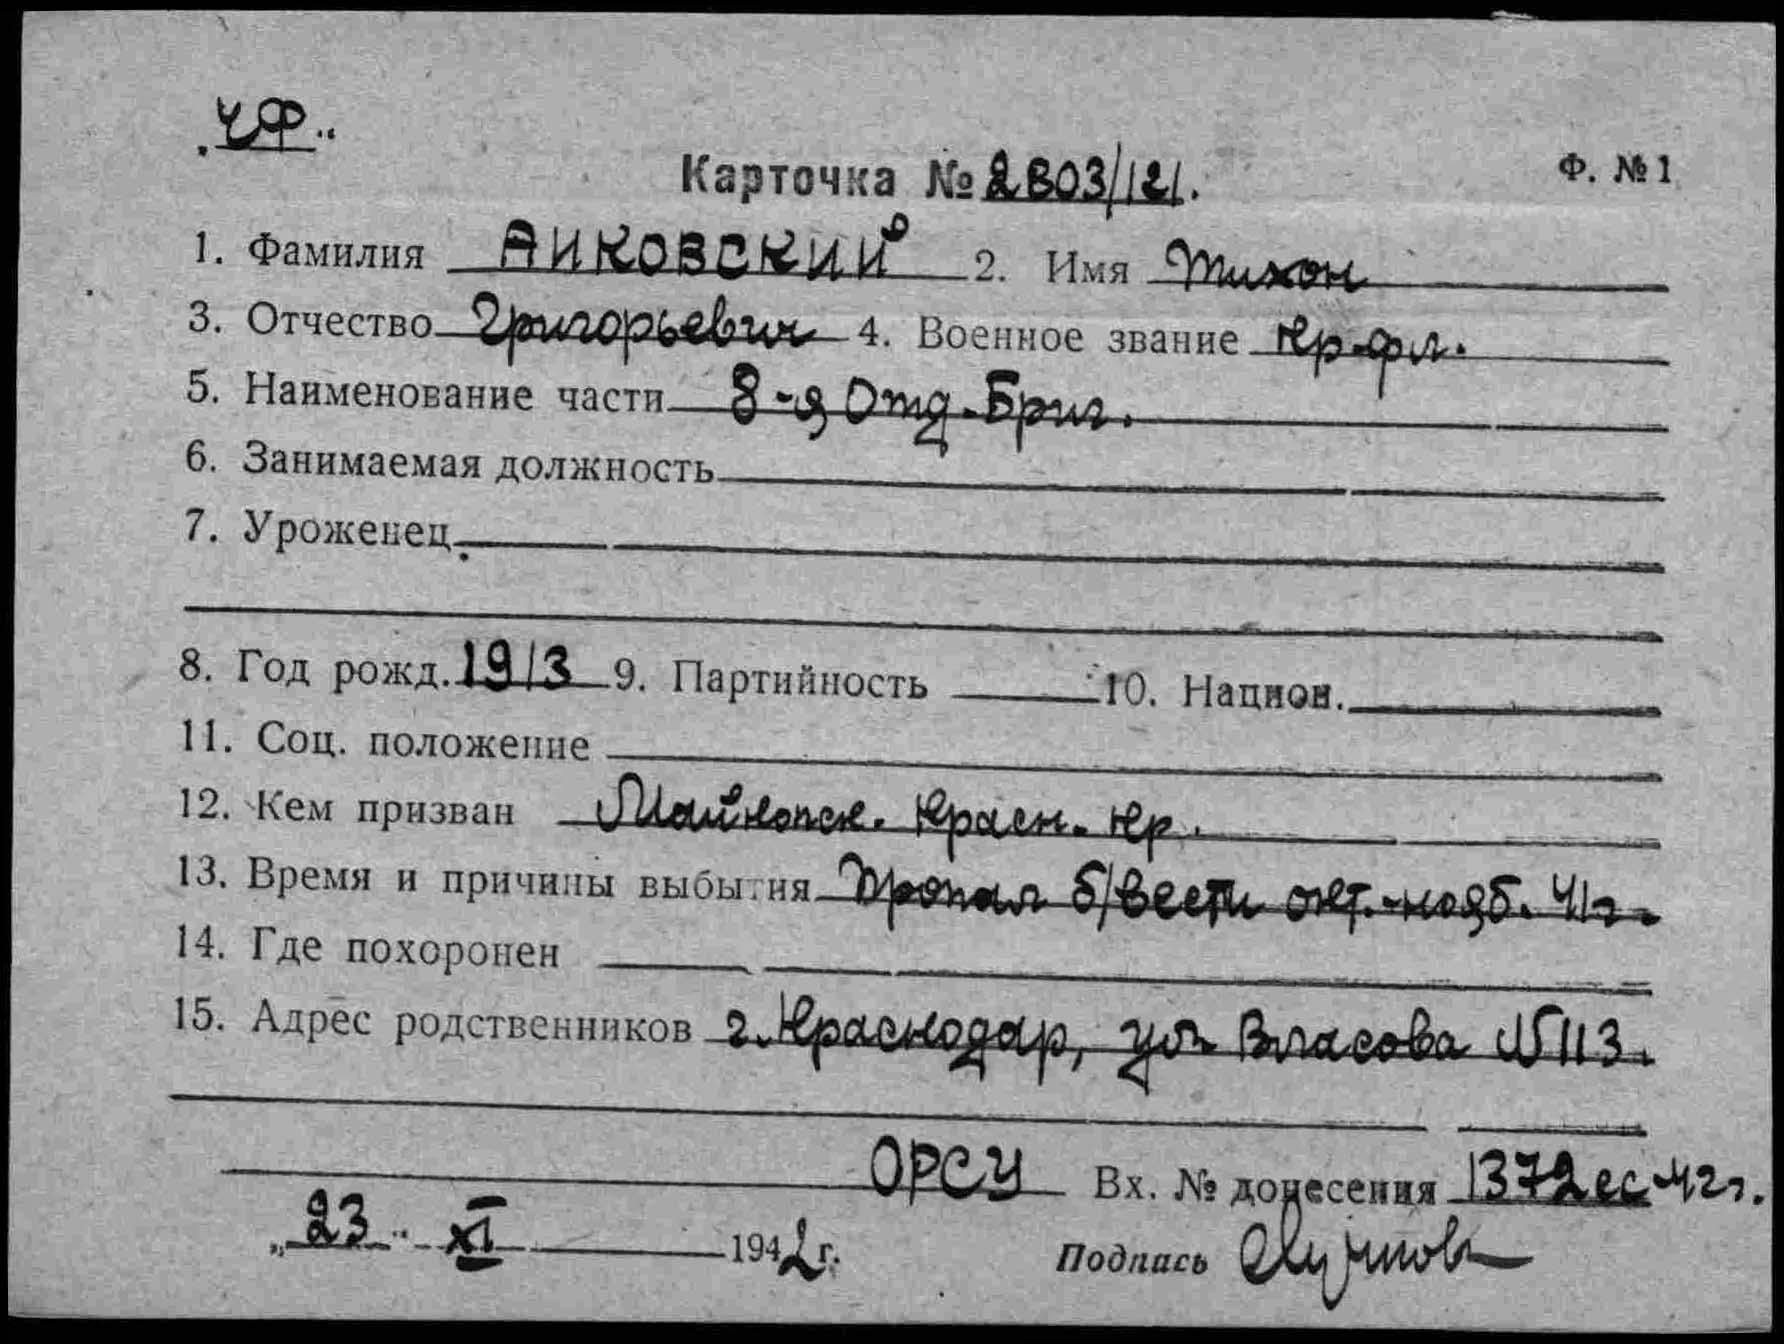 „ЧФ“
Карточка № 2803/121. Ф. №1
1. Фамилия АНКОВСКИЙ 2. Имя Тихон
3. Отчество Григорьевич 4. Военное звание Кр-фл.
5. Наименование части 8-я Отд. Бриг.
6. Занимаемая должность
7. Уроженец
8. Год рожд. 1913 9. Партийность 10. Национ.
11. Соц. положение
12. Кем призван Майкопск. Красн. Кр.
13. Время и причины выбытия Пропал б/вести окт.-нояб. 41г.
14. Где похоронен
15. Адрес родственников г. Краснодар, ул. Власова №113.
ОРСУ Вх. № донесения 1372сс-42г.
„23“ XI 1942г. Подпись